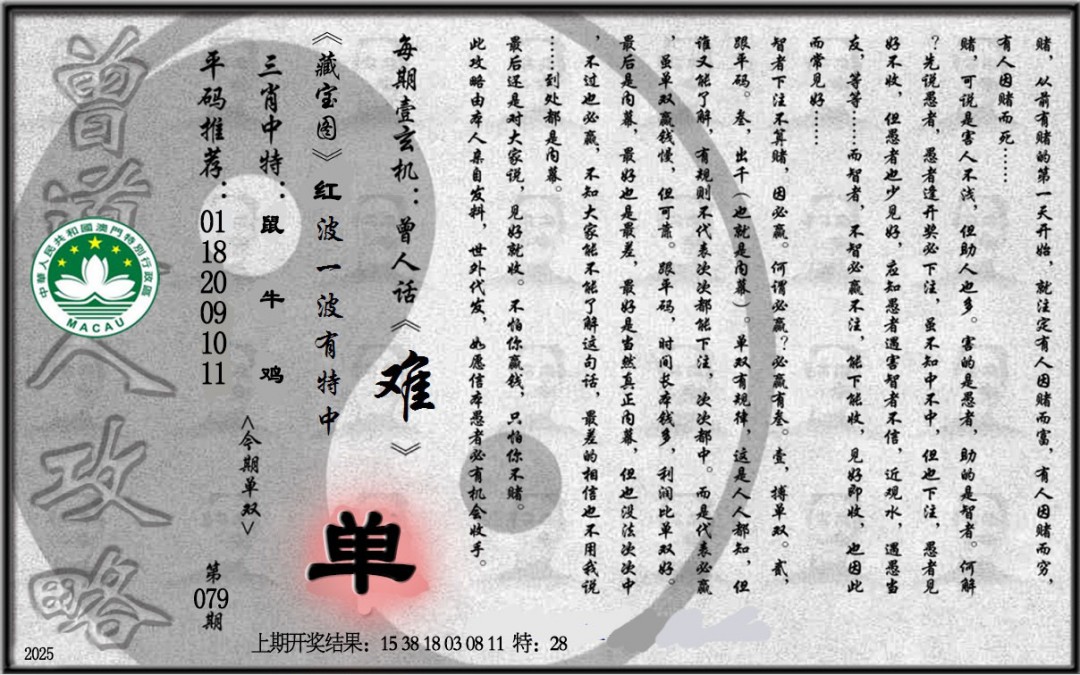 赌，从前有赌的第一天开始，就注定有人因赌而富，有人因赌而穷，
有人因赌而死……
赌，可说是害人不浅，但助人也多。害的是愚者，助的是智者。何解
？先说愚者，愚者逢开奖必下注，虽不知中不中，但也下注，愚者见
好不收，但愚者也少见好，应知愚者遇害智者不信，近观水，遇愚当
友，等等……而智者，不智必赢不注，能下能收，见好即收，也因此
而常见好……
智者下注不算赌，因必赢。何谓必赢？必赢有叁。壹，搏单双。贰，
跟平码。叁，出千（也就是内幕）。单双有规律，这是人人都知，但
谁又能了解，有规则不代表次次都能下注，次次都中。而是代表必赢
，虽单双赢钱慢，但可靠。跟平码，时间长本钱多，利润比单双好。
最后是内幕，最好也是最差，最好是当然真正内幕，但也没法次次中
，不过也必赢，不知大家能不能了解这句话，最差的相信也不用我说
……到处都是内幕。
最后还是对大家说，见好就收。不怕你赢钱，只怕你不赌。
此攻略由本人亲自发料，世外代发，如愿信本愚者必有机会收手。
每期壹玄机：曾人话《难》
《藏宝图》红波一波有特中
单
三肖中特：鼠 牛 鸡
<今期单双>
平码推荐：01 18 20 09 10 11
第079期
曾道人攻略
中華人民共和國澳門特別行政區
MACAU
上期开奖结果：15 38 18 03 08 11 特：28
2025